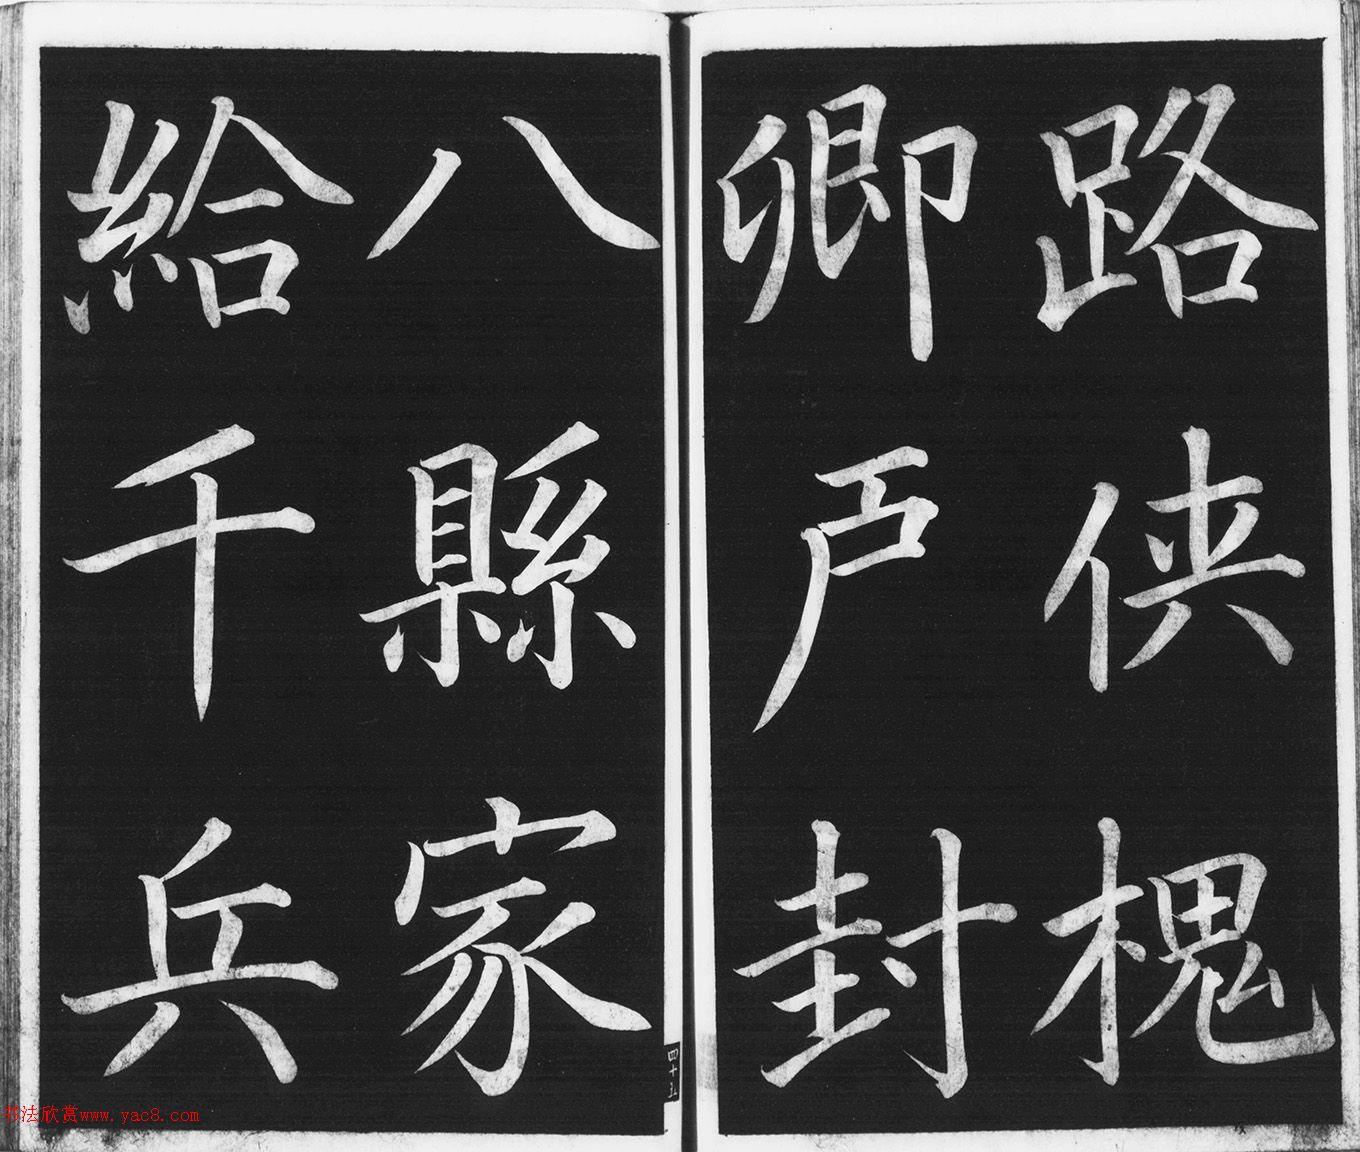 路侠槐
卿戸封
八縣家
給千兵
四十五
书法欣赏www.yac8.com